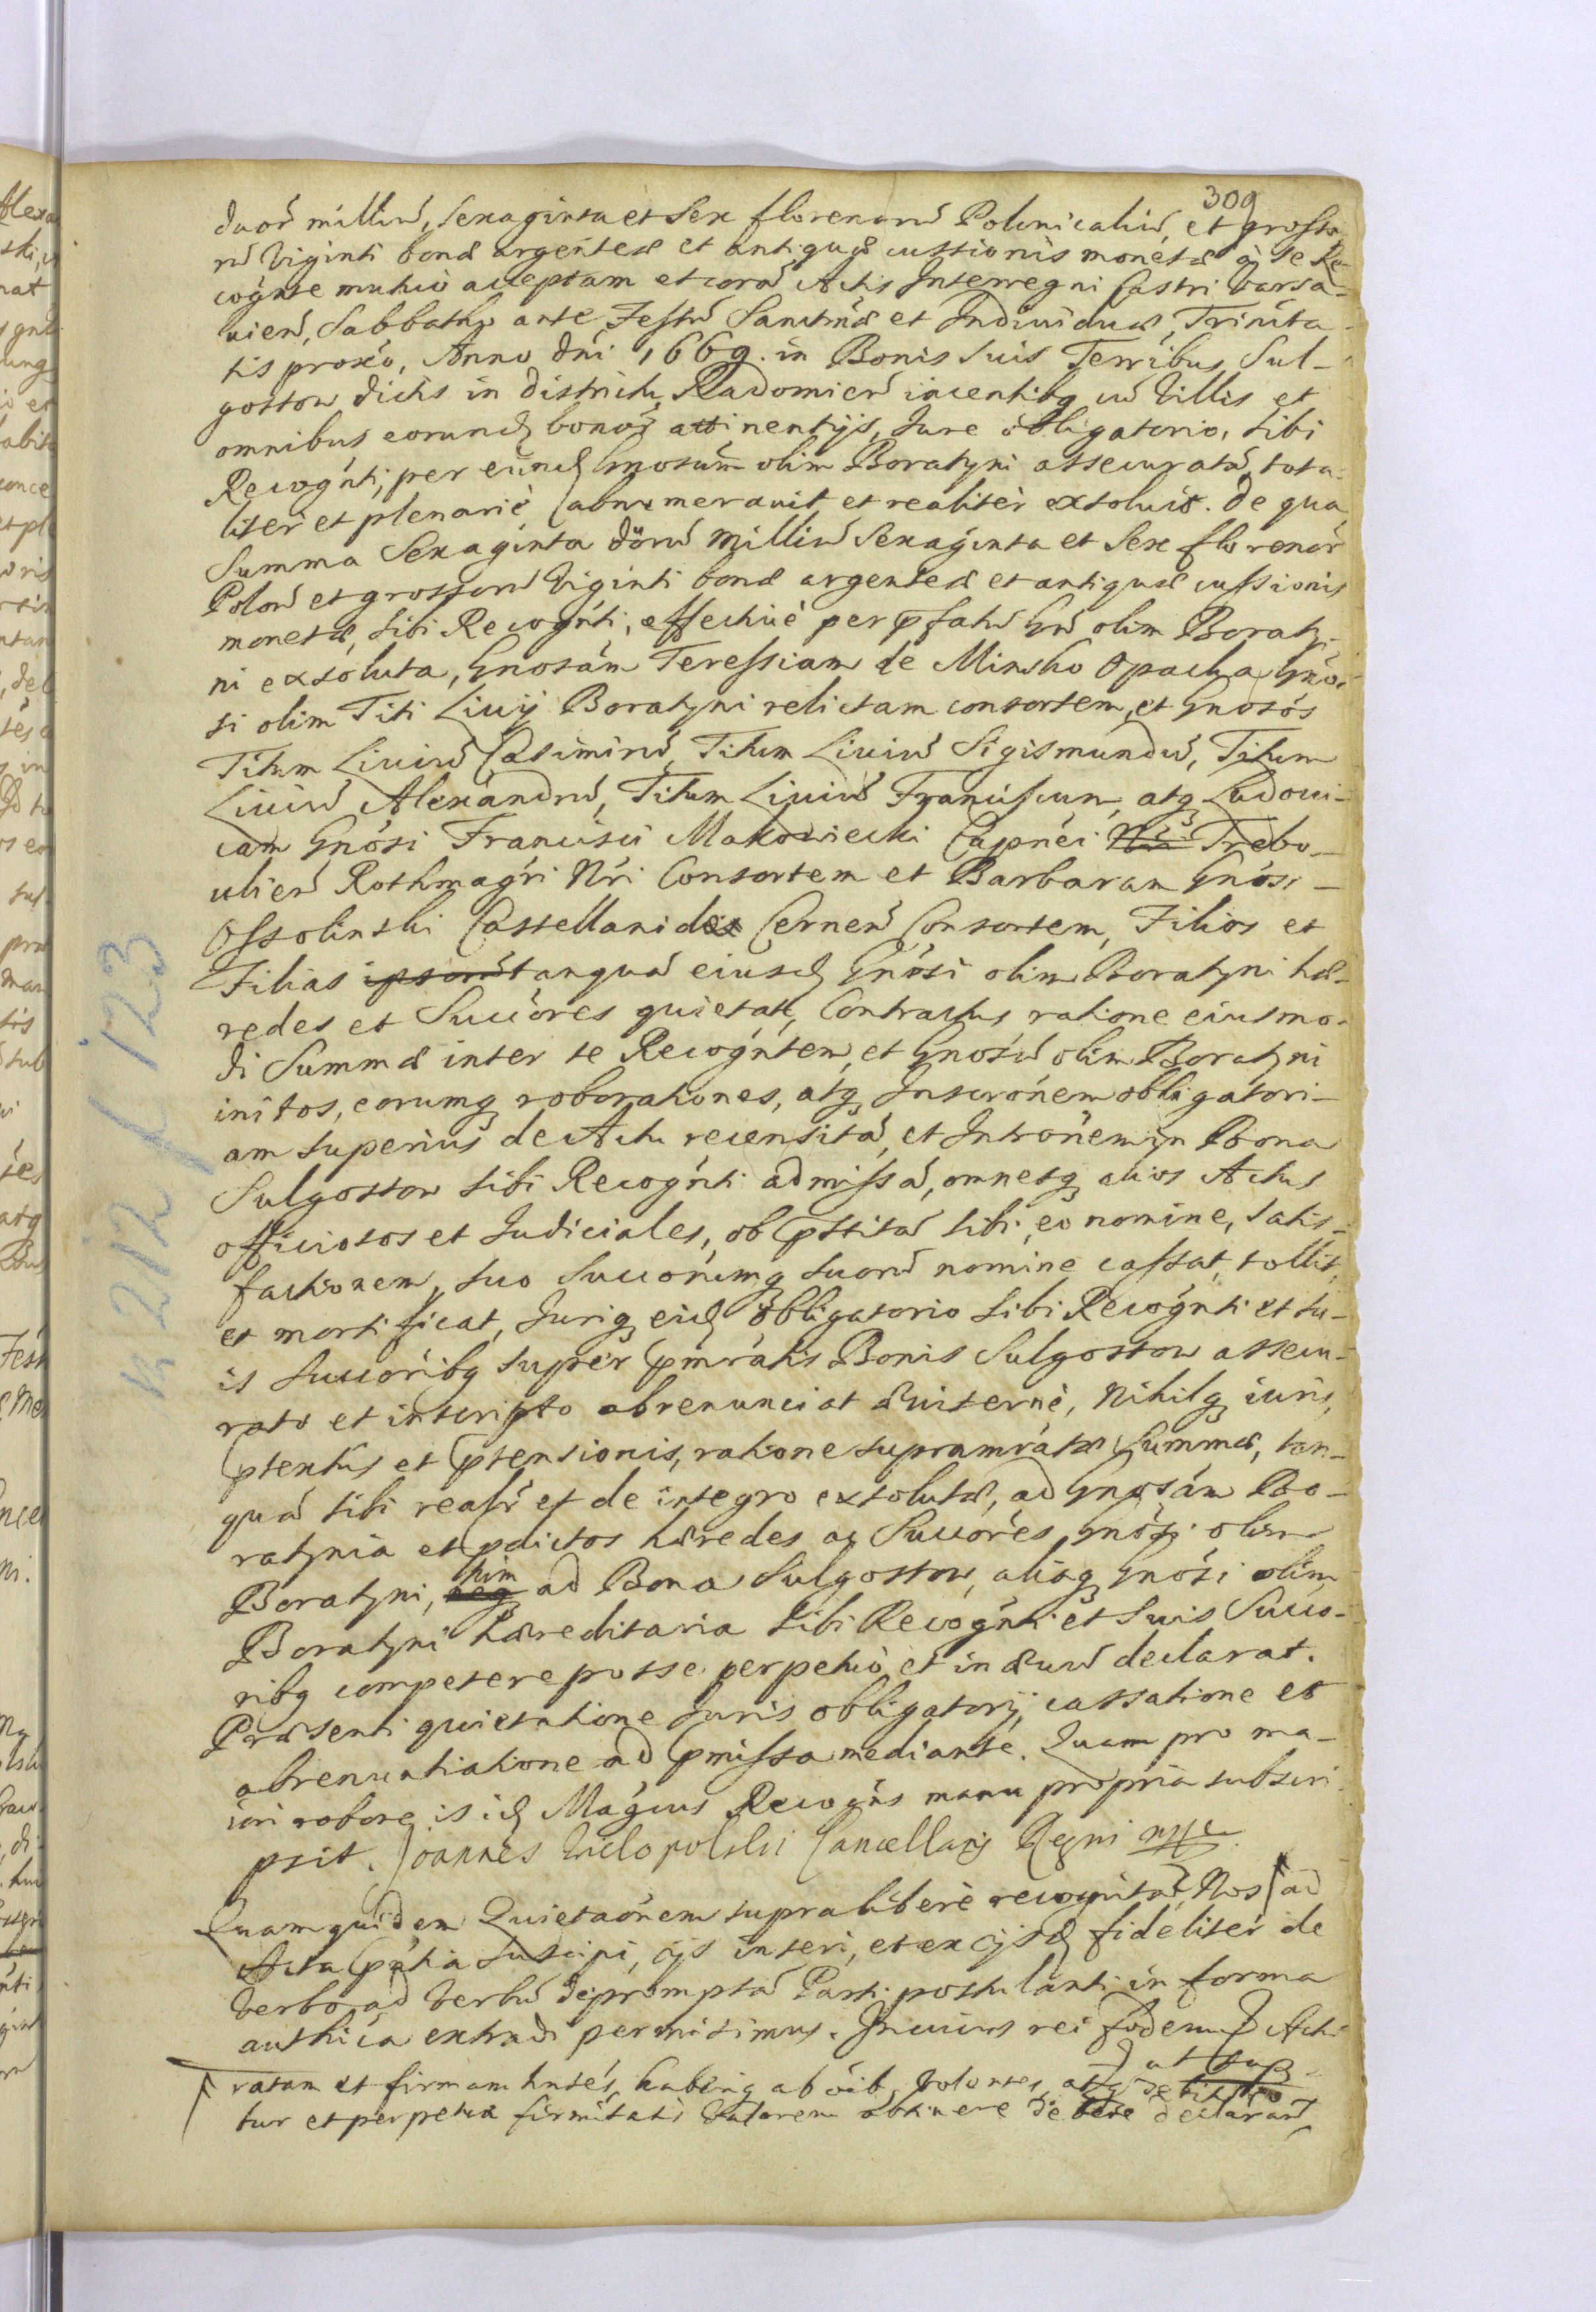 309
duor millium, Sexaginta et Sex florenorum Polonicalium, et grosso-
rum Viginti bonæ argenteæ et antiquæ cussionis monetæ à se Re-
cognte mutuò acceptam et coram Actis Interregni Castri Varsa-
vien, Sabbatho ante Festum Sanctmæ et Individuæ Trinita-
tis proxo, Anno Dni 1669. in Bonis suis Terribus Sul-
gostow dictis in districtu Radomien iacentibq cum Villis et
omnibus eorund bonoꝝ attinentijs, Jure obligatorio, sibi
Recognti, per eund Gnosum olim Boratyni assecuratam, tota-
liter et plenariè adnumeravit et realiter exsoluit. De qua
Summa Sexaginta duorum Millium Sexaginta et Sex florenor
Polon et grossorum Viginti bonæ argenteæ et antiquæ cussionis
monetæ, sibi Recognti, effectiuè per pfatum Gm olim Boraty-
ni exsoluta, Gnosam Teressiam de Minsko Opacka Gno-
si olim Titi Liuij Boratyni relictam consortem, et Gnosos
Titum Liuium Casimirum, Titum Liuium Sigismundum, Titum
Liuium Alexandrum, Titum Liuium Franciscum, atq Ludoui-
cam Gnosi Francisci Makowiecki Capnei Trebo-
ulien Rothmagri Nri Consortem et Barbaram Gnosi
Ossolinski Castellanidæ Cernen Consortem, Filios et
Filias ipsorum tanquam eiusd Gnosi olim Boratyni hæ-
redes et Succores quietat, Contractus ratione eiusmo-
di Summæ inter se Recogntem, et Gnosum olim Boratyni
initos, eorumq roborationes, atq Inscronem obligatori-
am superius de Actu recensitam, et Intronem in Bona
Sulgostow sibi Recognti admissam, omnesq alios Actus
officiosos et Judiciales, ob pstitam sibi, eo nomine, satis-
factionem, suo Succorumq suorum nomine cassat, tollit,
et mortificat, Juriq eid obligatorio sibi Recognti et su-
is Succoribq super pmratis Bonis Sulgostow assecu-
rato et inscripto abrenunciat æuiternè, Nihilq iuris,
ptextus et ptensionis, ratione supramratæ Summæ, tan-
quam sibi realr et de integro exsolutæ, ad Gnosam Bo-
ratynia et pdictos hæredes ac Succores Gnosi olim
Boratyni, neq tum ad Bona Sulgostow, aliaq Gnosi olim
Boratyni hæreditaria sibi Recognti et suis Succo-
ribq competere posse perpetuò et in æuum declarat.
Præsenti quietatione Juris obligatorij, cassatione et
abrenuntiatione ad pmissa mediante. Quam pro ma-
iori robore is id Magcus Recogns manu propria subscri-
psit. Joannes Wielopolski Cancellarij Regni mpp
Quamquidem Quietaonem supra liberè recognitam, Nos ad
Acta pntia suscipi, ijs inseri, et ex ijsd fideliter de
Verbo ad Verbum depromptam Parti postulanti in forma
authica extradi permisimus. In cuius rei fidem Actu
ratam et firmam hntes, haberiq ab oib. volentes, atq debitum
tur et perpetuæ firmitatis Valorem obtinere debere declarant
n 212 f 123